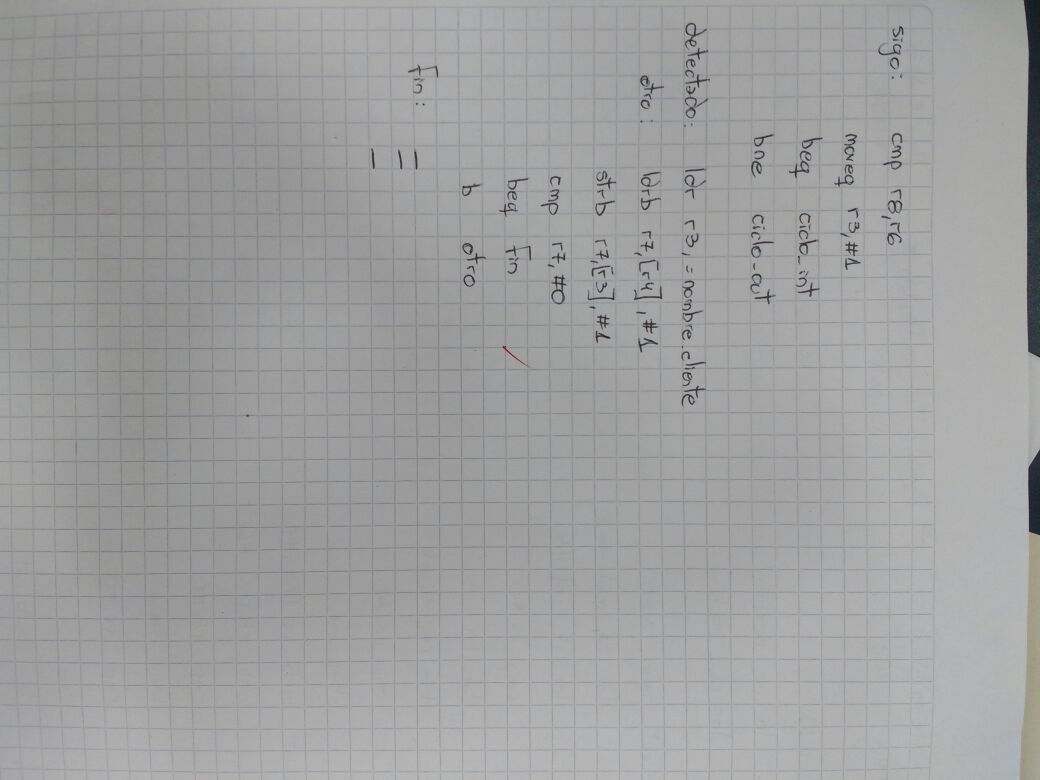 sigo: cmp r8,r6
moveq r3,#1
beq ciclo_int
bne ciclo-out
detectado: ldr r3,=nombre.cliente
otro: ldrb r7,[r4],#1
strb r7,[r3],#1
cmp r7,#0
beq fin
b otro
fin: